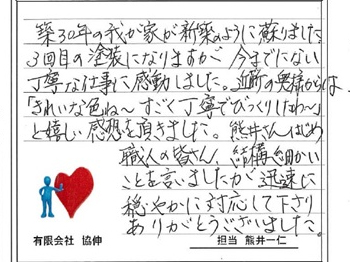 築30年の我が家が新築のように蘇りました
3回目の塗装になりますが今までにない
丁寧な仕事に感動しました。近所の奥様からは、
「きれいな色ね～すごく丁寧でびっくりしたわ～」
と嬉しい感想を頂きました。熊井さんはじめ
職人の皆さん、結構細かい
ことを言いましたが迅速に
穏やかに対応して下さり
ありがとうございました。
有限会社 協伸
担当 熊井一仁